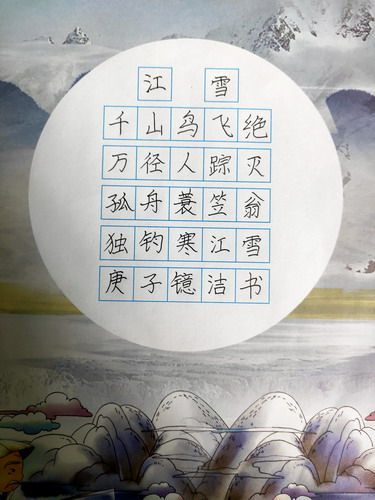 江雪
千山鸟飞绝
万径人踪灭
孤舟蓑笠翁
独钓寒江雪
庚子镱洁书